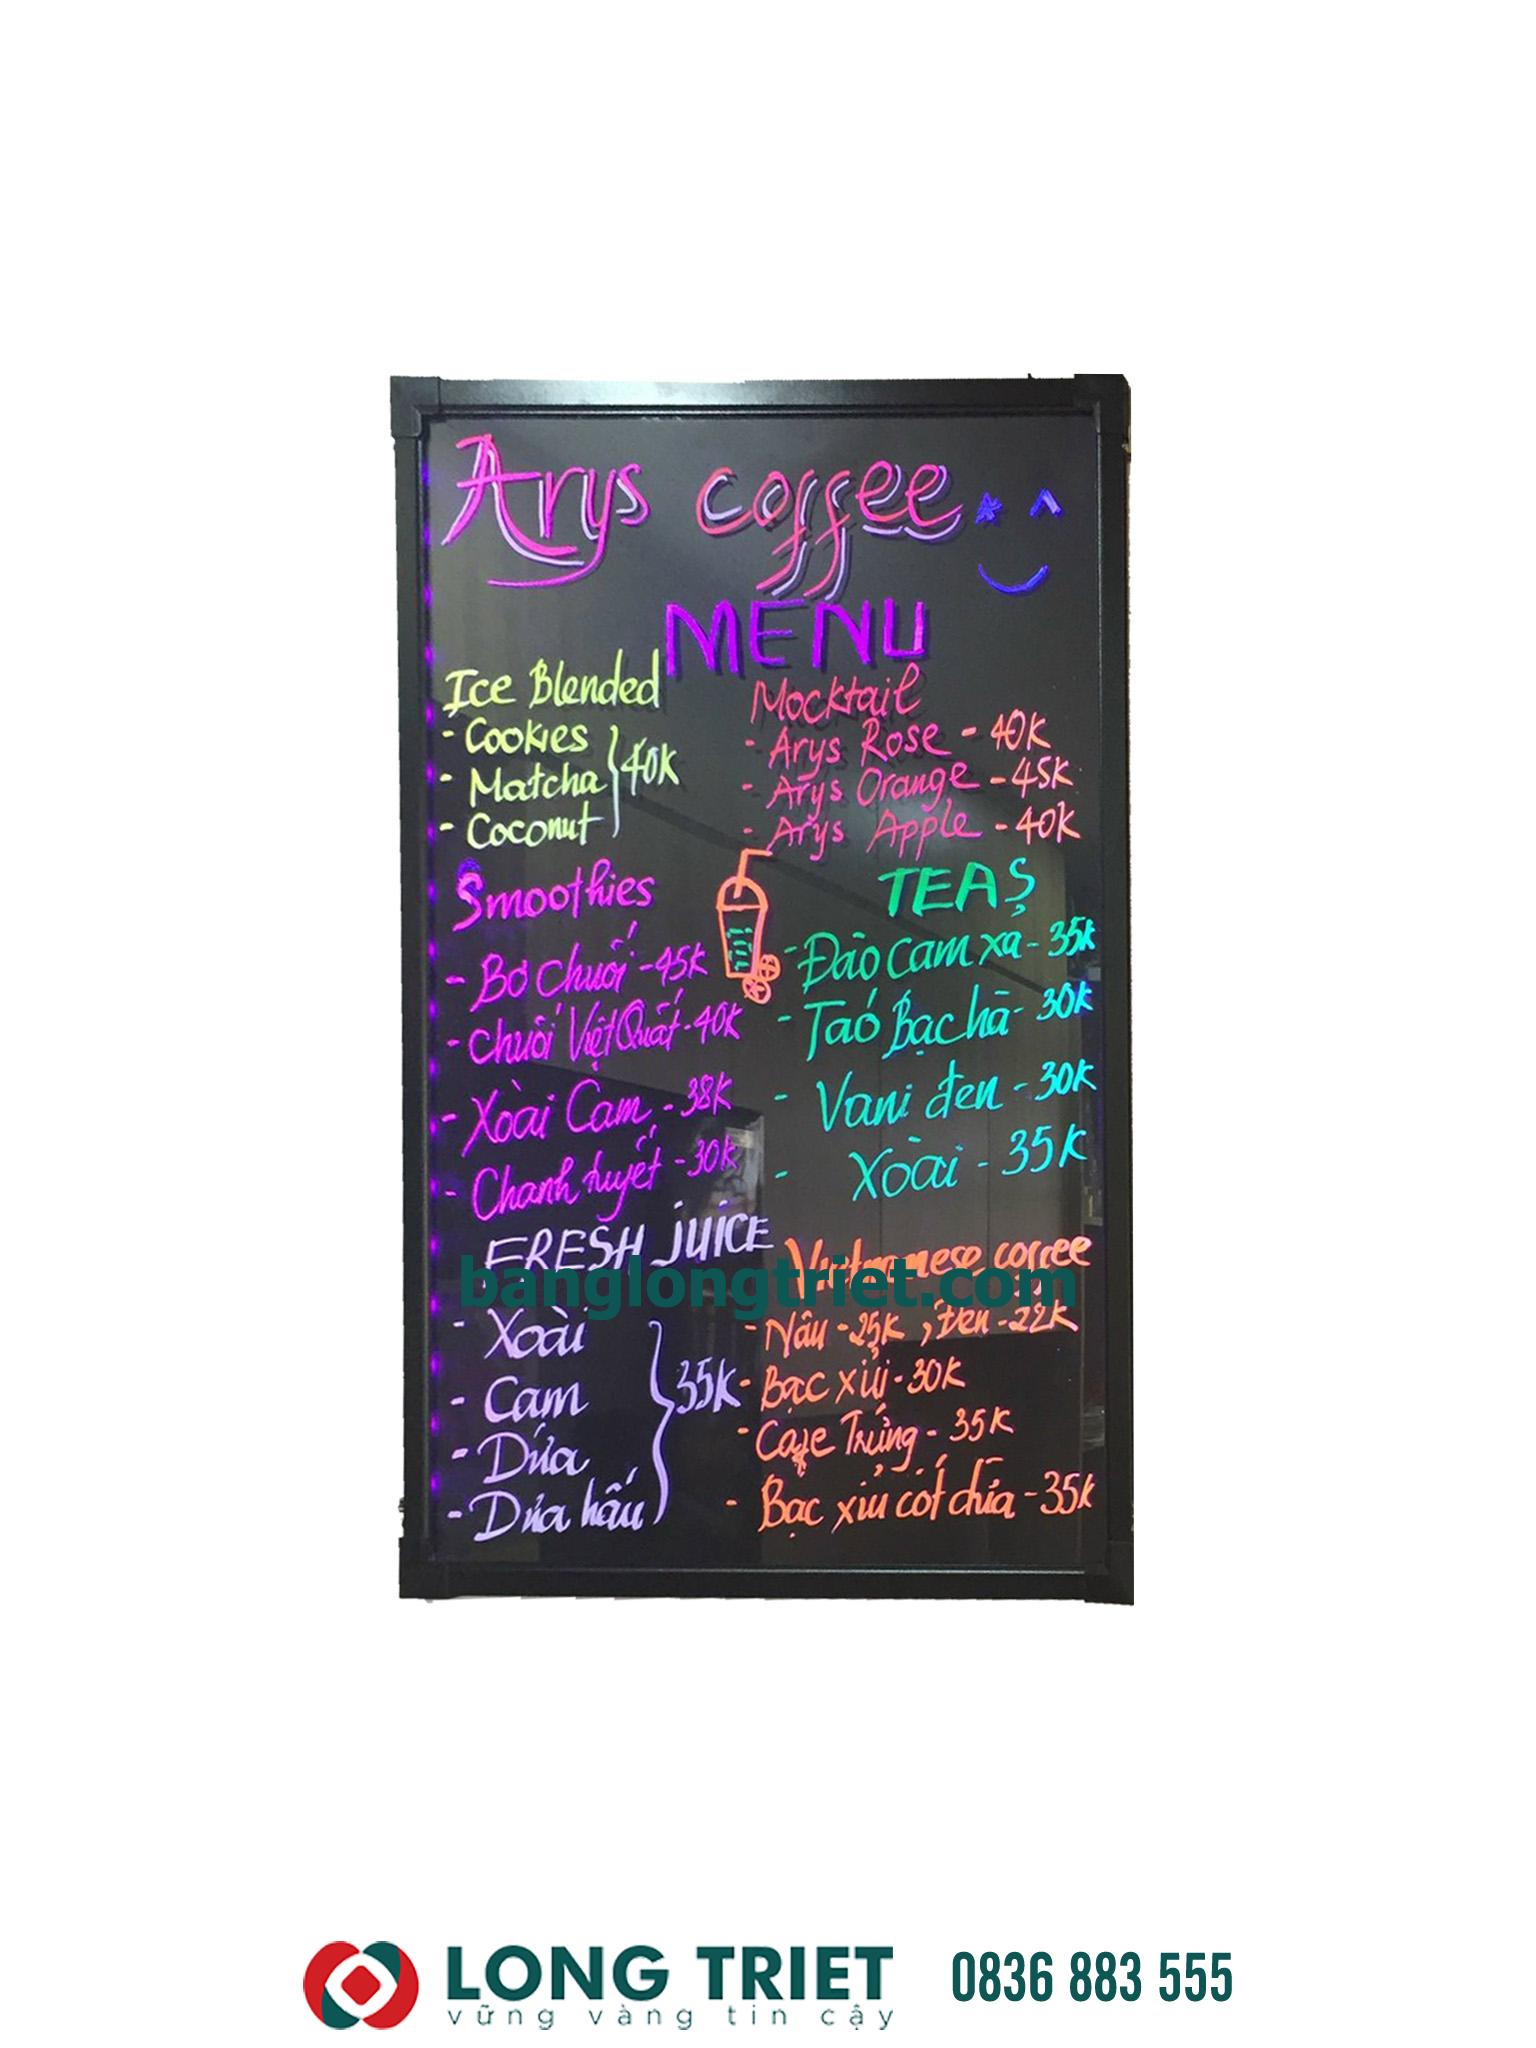 Arys coffee
MENU
Ice Blended
- Cookies
- Matcha
- Coconut
40K
Mocktail
- Arys Rose - 40K
- Arys Orange - 45K
- Arys Apple - 40K
Smoothies
- Bơ Chuối - 45K
- Chuối Việt Quất - 40K
- Xoài Cam - 38K
- Chanh tuyết - 30K
TEAS
- Đào cam xả - 35K
- Táo Bạc hà - 30K
- Vani đen - 30K
- Xoài - 35K
FRESH JUICE
- Xoài
- Cam
- Dứa
- Dưa hấu
35K
Vietnamese coffee
- Nâu - 25K, Đen - 22K
- Bạc xỉu - 30K
- Cafe Trứng - 35K
- Bạc xỉu cốt dừa - 35K
banglongtriet.com
LONG TRIET
vững vàng tin cậy
0836 883 555